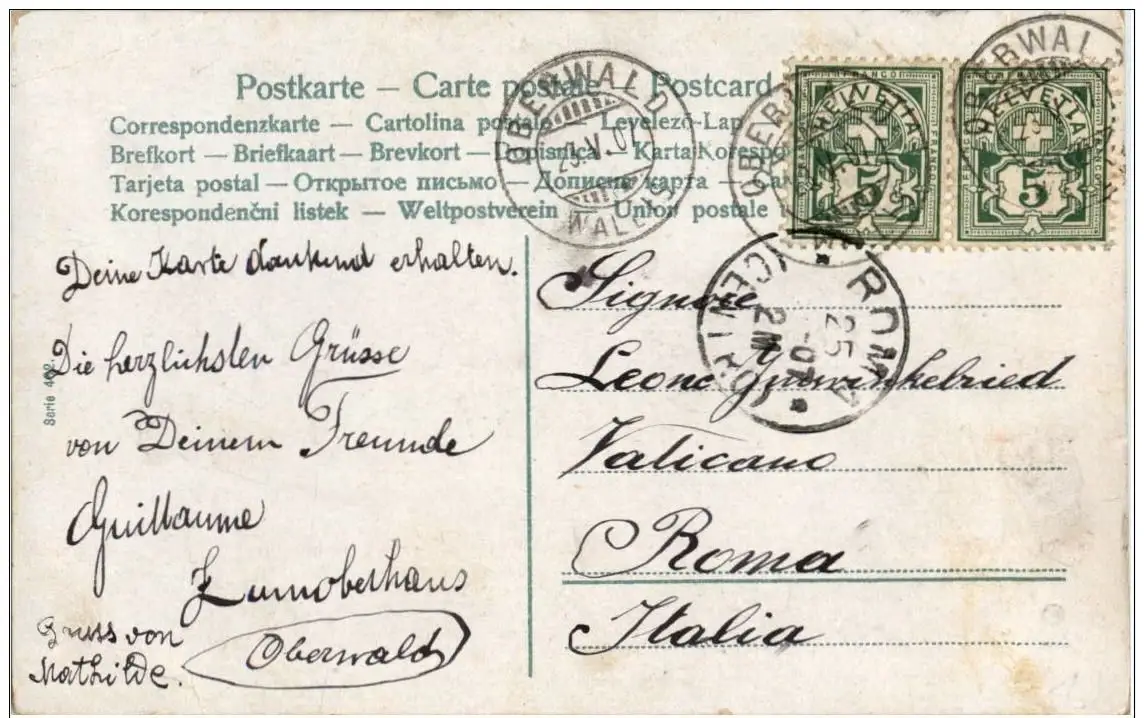 Postkarte — Carte postale — Postcard
Correspondenzkarte — Cartolina postale — Levelező-Lap
Brefkort — Briefkaart — Brevkort — Karta Korespo
Tarjeta postal — Открытое письмо — Дописна карта —
Korespondenční listek — Weltpostverein — Union postale
OBERWALD
WALLIS
OBERWALD
HELVETIA
FRANCO
5
OBERWALD
HELVETIA
5
ROMA
CENTRO
25
2M
Deine Karte dankend erhalten.
Die herzlichsten Grüsse
von Deinem Freunde
Guillaume
Zumoberhaus
Oberwald
Gruss von
Mathilde.
Serie 402
Signore
Leone
Vaticano
Roma
Italia